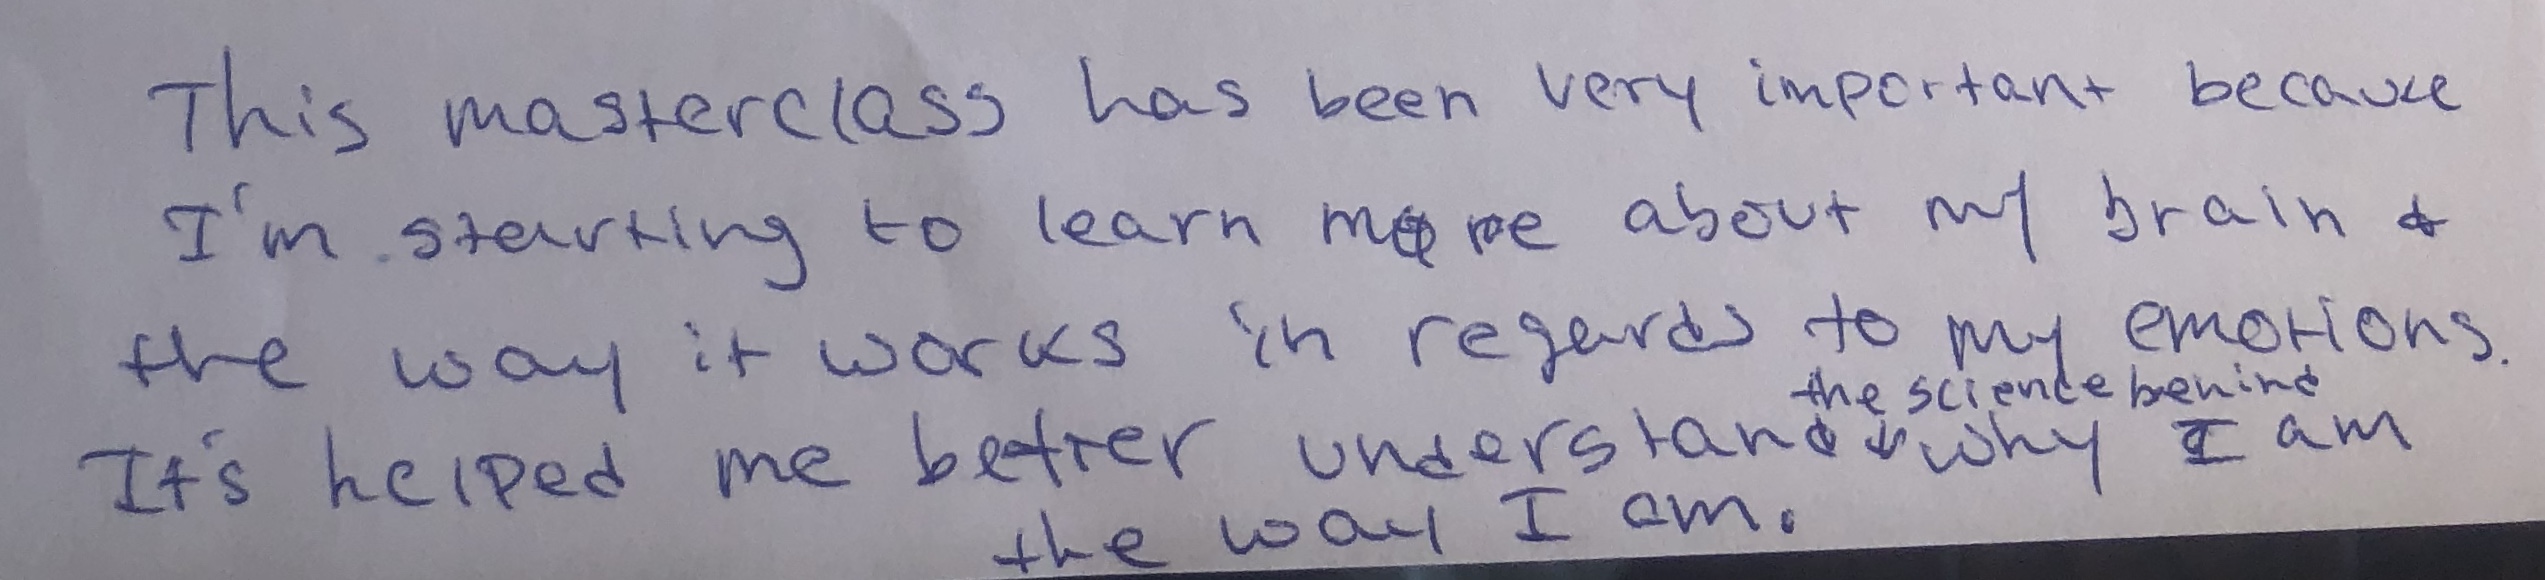 This masterclass has been very important because
I'm starting to learn more about my brain &
the way it works in regards to my emotions.
It's helped me better understand the science behind why I am
the way I am.